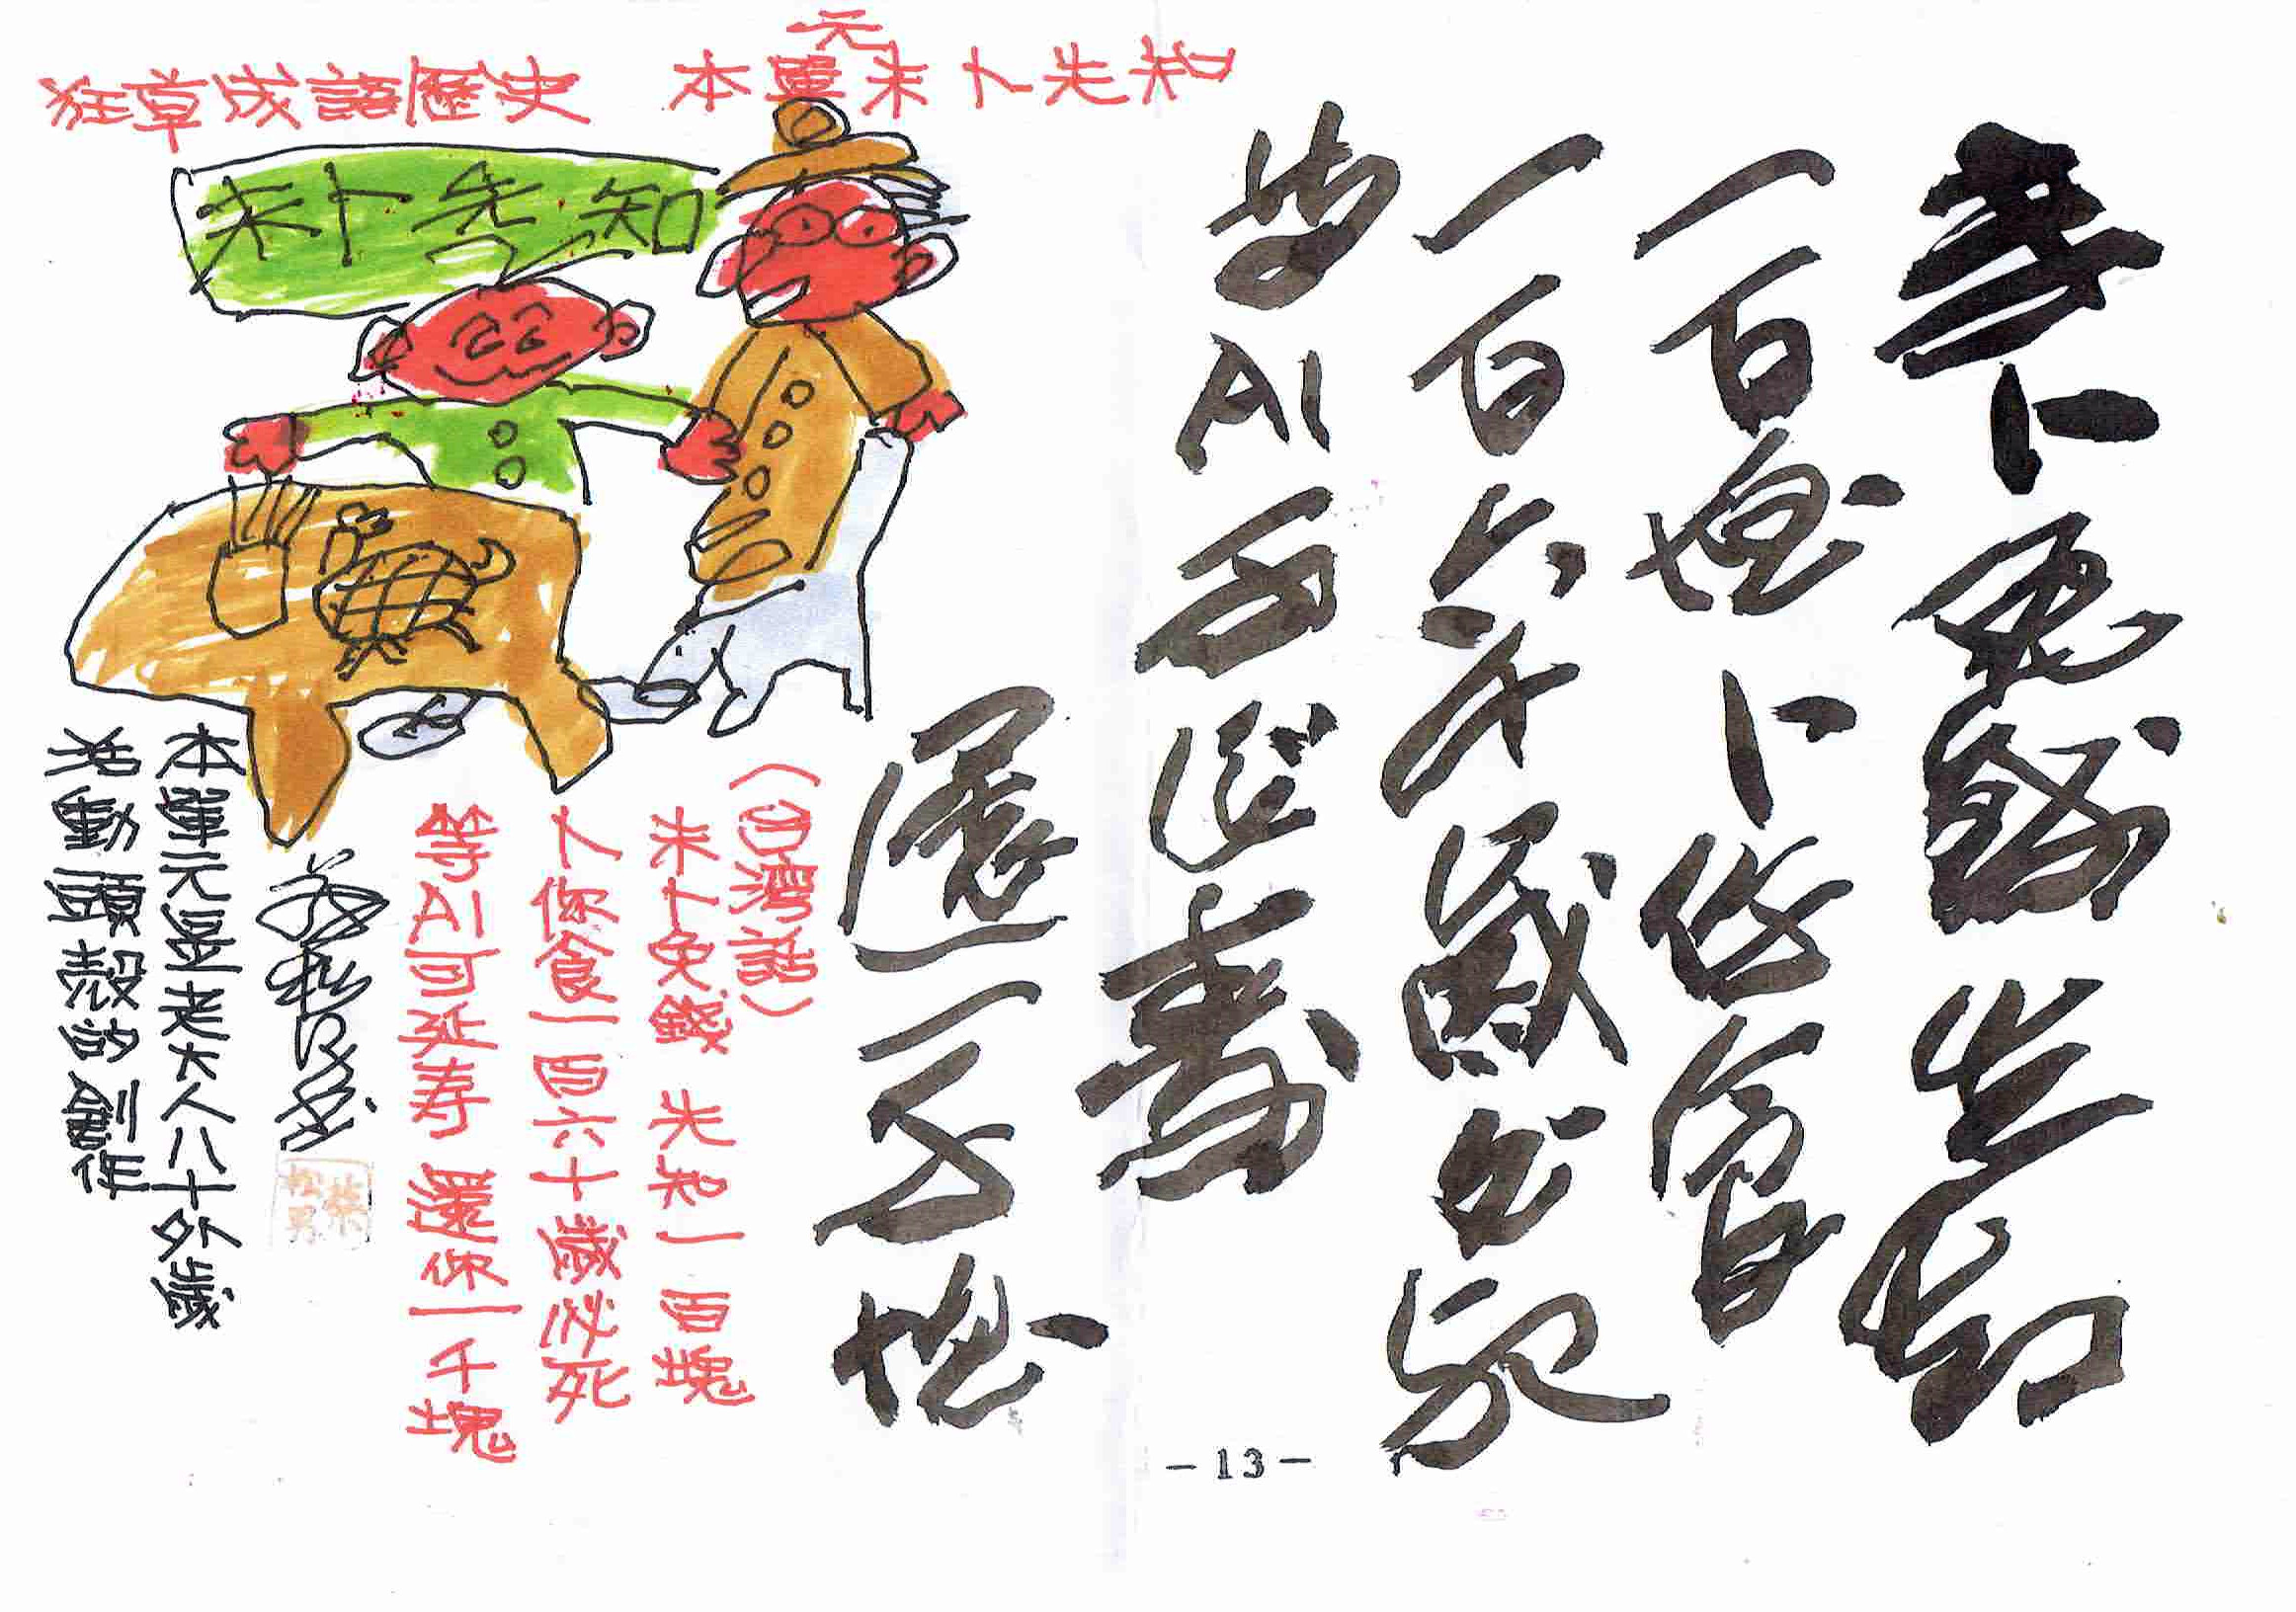 狂草成語歷史　本單元未卜先知
未卜先知
未卜免錢　先知
一百塊　卜你食
一百六十歲必死
等AI可延壽
還一千塊
（台湾話）
未卜免錢　先知一百塊
卜你食一百六十歲必死
等AI可延寿　還你一千塊
本單元是老大人八十外歲
活動頭殼的創作
-13-